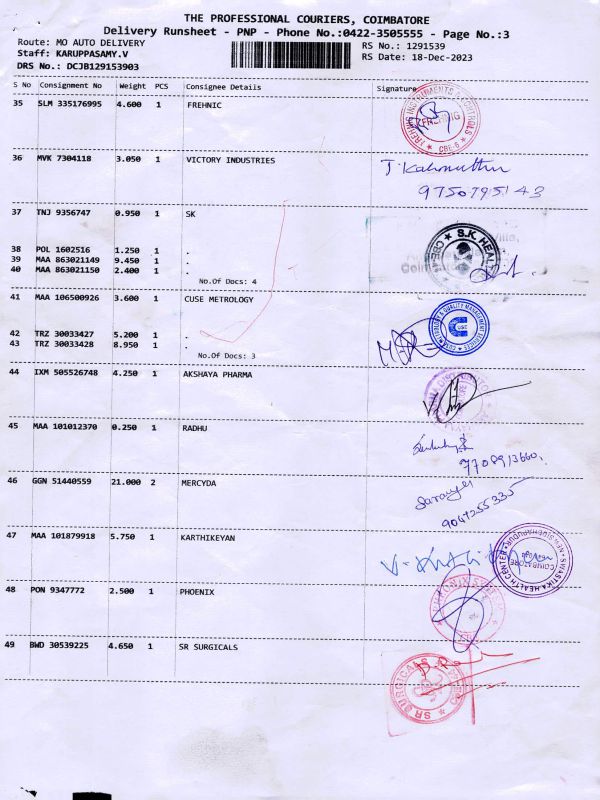 THE PROFESSIONAL COURIERS, COIMBATORE
Delivery Runsheet - PNP - Phone No.:0422-3505555 - Page No.:3
Route: MO AUTO DELIVERY
RS No.: 1291539
Staff: KARUPPASAMY.V
RS Date: 18-Dec-2023
DRS No.: DCJB129153903
S No Consignment No Weight PCS Consignee Details Signature
35 SLM 335176995 4.600 1 FREHNIC
FREHNIG
CBE-6
36 MVK 7304118 3.050 1 VICTORY INDUSTRIES
9750795143
37 TNJ 9356747 0.950 1 SK
38 POL 1602516 1.250 1 .
39 MAA 863021149 9.450 1 .
40 MAA 863021150 2.400 1 .
No.Of Docs: 4
S.K. HEAL
41 MAA 106500926 3.600 1 CUSE METROLOGY
42 TRZ 30033427 5.200 1 .
43 TRZ 30033428 8.950 1 .
No.Of Docs: 3
44 IXM 505526748 4.250 1 AKSHAYA PHARMA
45 MAA 101012370 0.250 1 RADHU
7708913660.
46 GGN 51440559 21.000 2 MERCYDA
9047255335
47 MAA 101879918 5.750 1 KARTHIKEYAN
SWASTIKA HEALTH CENTER
COIMBATORE
48 PON 9347772 2.500 1 PHOENIX
49 BWD 30539225 4.650 1 SR SURGICALS
SR SURGICALS